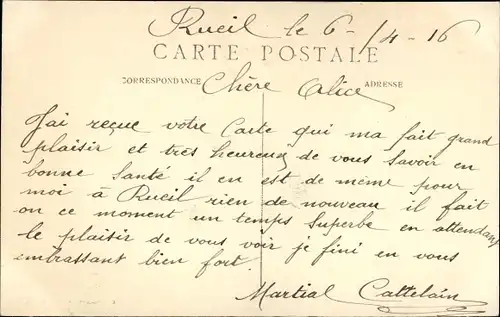 Rueil le 6-/4-16
CARTE POSTALE
CORRESPONDANCE ADRESSE
Chère Alice
J'ai reçue votre Carte qui ma fait grand
plaisir et très heureux de vous Savoir en
bonne Santé il en est de même pour
moi à Rueil rien de nouveau il fait
on ce moment un temps Superbe en attendant
le plaisir de vous voir je fini en vous
embrassant bien fort.
Martial Cattelain